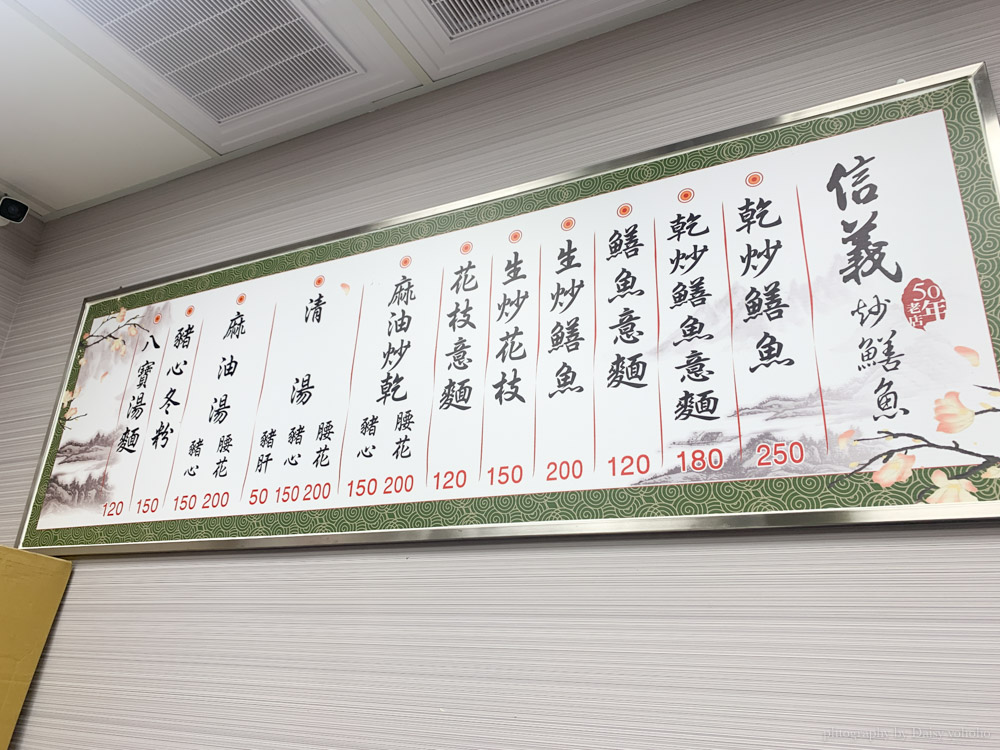 信義
炒鱔魚
50年
老店
乾炒鱔魚
250
乾炒鱔魚意麵
180
鱔魚意麵
120
生炒鱔魚
200
生炒花枝
150
花枝意麵
120
麻油炒乾
腰花
200
豬心
150
清湯
腰花
200
豬心
150
豬肝
50
麻油湯
腰花
200
豬心
150
豬心冬粉
150
八寶湯麵
120